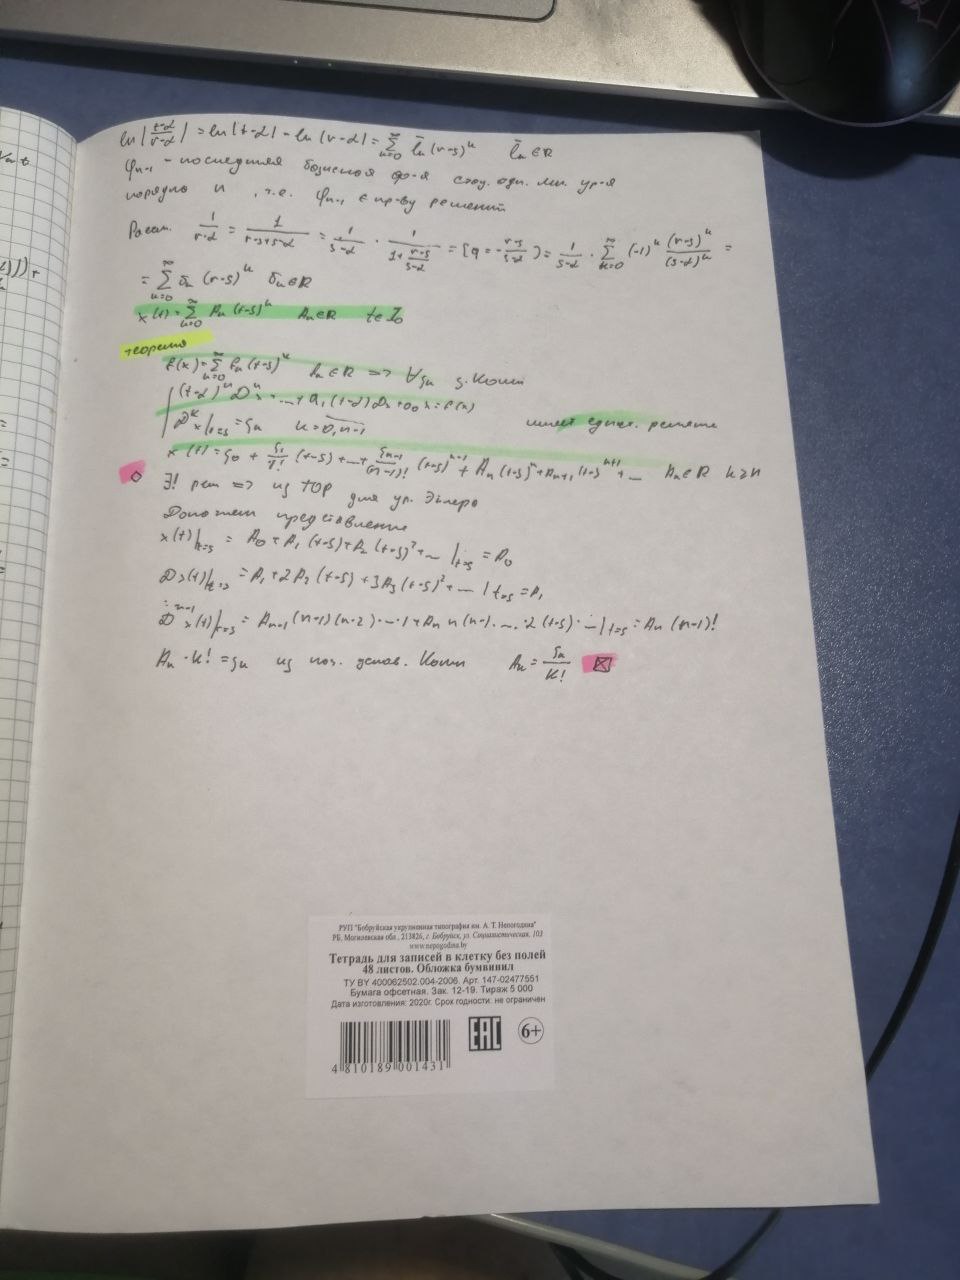 ln|(t-α)/(r-α)| = ln|t-α| - ln|r-α| = ∑_{k=0}^∞ l̄_k (r-s)^k l̄_k ∈ R
φ_{n-1} - последняя базисная ф-я соду. одн. лин. ур-я
порядка n, т.е. φ_{n-1} ∈ пр-ву решений
Рассм. 1/(r-α) = 1/(r-s+s-α) = 1/(s-α) · 1/(1+(r-s)/(s-α)) = [q = -(r-s)/(s-α)] = 1/(s-α) · ∑_{k=0}^∞ (-1)^k (r-s)^k/(s-α)^k =
= ∑_{k=0}^∞ δ_k (r-s)^k δ_k ∈ R
x(t) = ∑_{k=0}^∞ A_k (t-s)^k A_k ∈ R t ∈ I_0
теорема
f(x) = ∑_{k=0}^∞ f_k (t-s)^k f_k ∈ R => ∀ξ_k з. Коши
(t-α)^n D^n x + ... + a_1 (t-α) Dx + a_0 x = f(x)
D^k x|_{t=s} = ξ_k k = 0,n-1 имеет единст. решение
x(t) = ξ_0 + ξ_1/1! (t-s) + ... + ξ_{n-1}/(n-1)! (t-s)^{n-1} + A_n (t-s)^n + A_{n+1} (t-s)^{n+1} + ... A_k ∈ R k ≥ n
◇ ∃! реш => из ТОР для ур. Эйлера
Докажем представление
x(t)|_{t=s} = A_0 + A_1 (t-s) + A_2 (t-s)^2 + ... |_{t=s} = A_0
Dx(t)|_{t=s} = A_1 + 2A_2 (t-s) + 3A_3 (t-s)^2 + ... |_{t=s} = A_1
⋮
D^{n-1} x(t)|_{t=s} = A_{n-1} (n-1)(n-2)·...·1 + A_n n(n-1)·...·2 (t-s)·...|_{t=s} = A_n (n-1)!
A_k · k! = ξ_k из нач. услов. Коши A_k = ξ_k/k! ⊠
РУП "Бобруйская укрупненная типография им. А. Т. Непогодина"
РБ, Могилевская обл., 213826, г. Бобруйск, ул. Социалистическая, 103
www.nepogodina.by
Тетрадь для записей в клетку без полей
48 листов. Обложка бумвинил
ТУ BY 400062502.004-2006. Арт. 147-02477551
Бумага офсетная. Зак. 12-19. Тираж 5 000
Дата изготовления: 2020г. Срок годности: не ограничен
EAC 6+
4 810189 001431